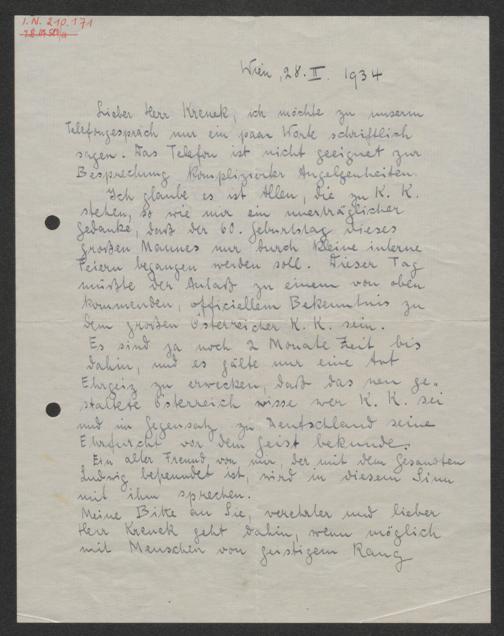 I.N. 210.171
Wien, 28. II. 1934
Lieber Herr Krenek, ich möchte zu unserm
Telefongespräch nur ein paar Worte schriftlich
sagen. Das Telefon ist nicht geeignet zur
Besprechung komplizierter Angelegenheiten.
Ich glaube es ist Allen, die zu K. K.
stehen, so wie mir ein unerträglicher
Gedanke, daß der 60. Geburtstag dieses
großen Mannes nur durch kleine interne
Feiern begangen werden soll. Dieser Tag
müßte der Anlaß zu einem von oben
kommenden, officiellem Bekenntnis zu
dem großen Österreicher K. K. sein.
Es sind ja noch 2 Monate Zeit bis
dahin, und es gälte nur eine Art
Ehrgeiz zu erwecken, daß das neu ge-
staltete Österreich wisse wer K. K. sei
und im Gegensatz zu Deutschland seine
Ehrfurcht vor dem Geist bekunde.
Ein alter Freund von mir, der mit dem Gesandten
Ludwig befreundet ist, wird in diesem Sinn
mit ihm sprechen.
Meine Bitte an Sie, verehrter und lieber
Herr Krenek geht dahin, wenn möglich
mit Menschen von geistigem Rang